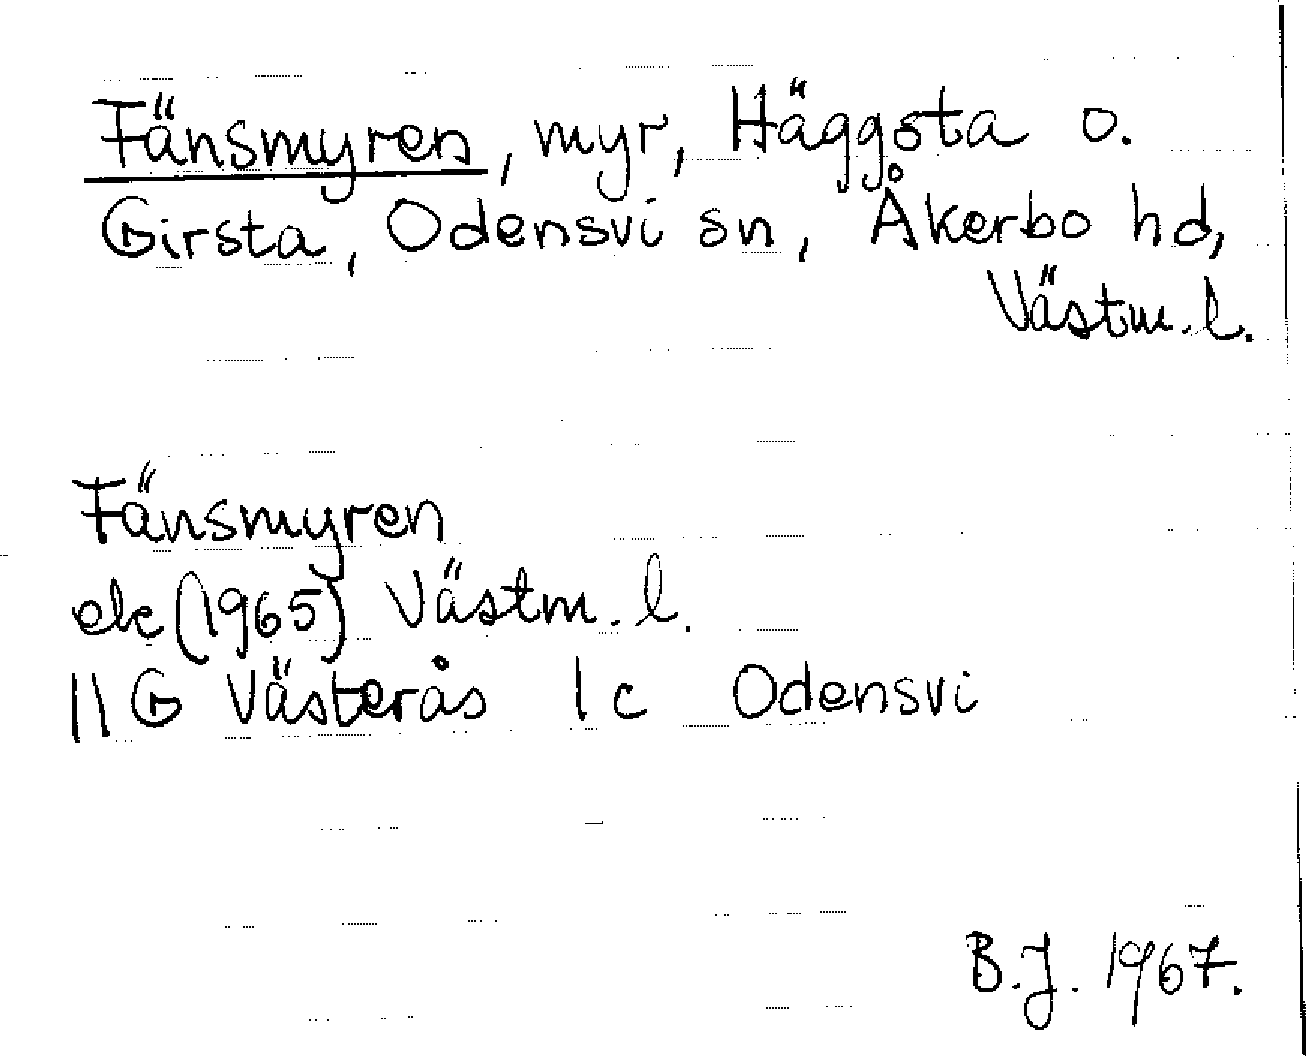 Fänsmyren, myr, Häggsta o.
Girsta, Odensvi sn, Åkerbo hd,
Västm. l.
Fänsmyren
ek (1965) Västm. l.
11G Västerås 1c Odensvi
B.J. 1967.